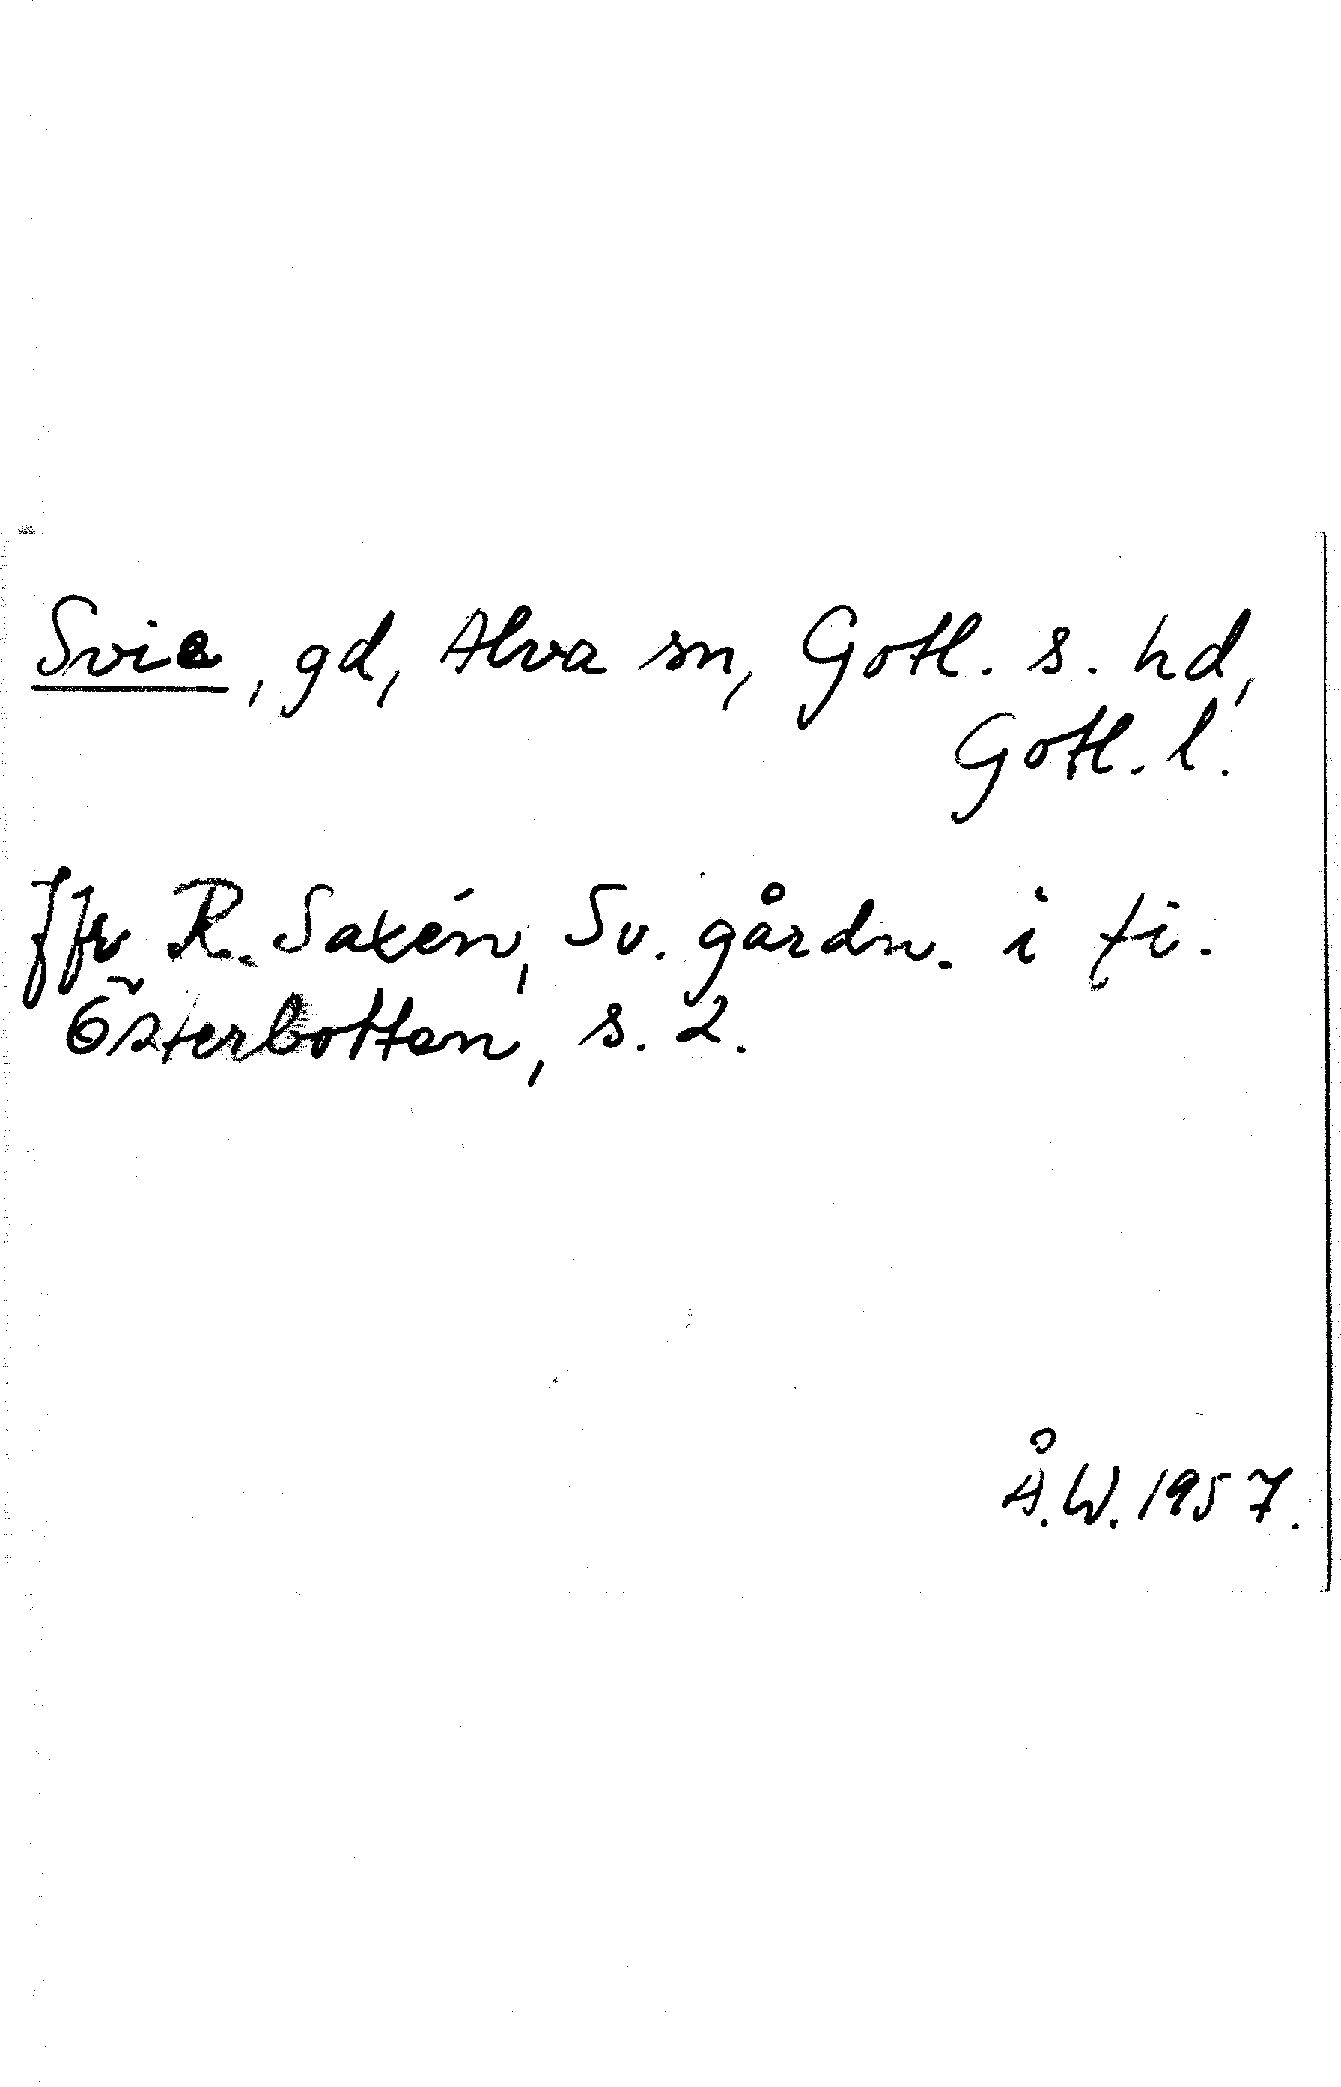 Svie, gd, Alva sn, Gotl. s. hd,
Gotl. l.
Jfr R. Saxén, Sv. gårdn. i fi.
Österbotten, s. 2.
Å.W. 1957.